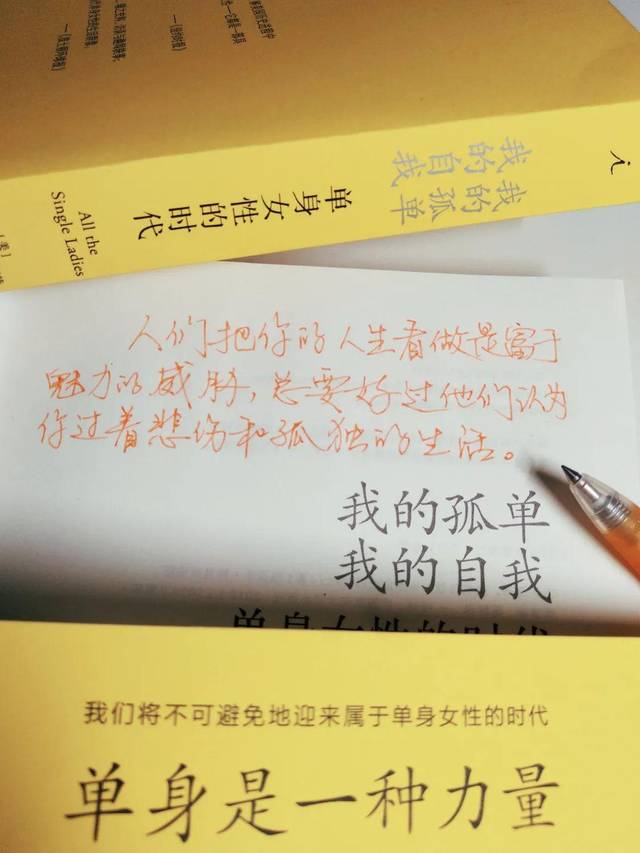 我的孤单
我的自我
单身女性的时代
All the
Single Ladies
[美]
人们把你的人生看做是富于
魅力的威胁，总要好过他们认为
你过着悲伤和孤独的生活。
我的孤单
我的自我
单身女性的时代
我们将不可避免地迎来属于单身女性的时代
单身是一种力量